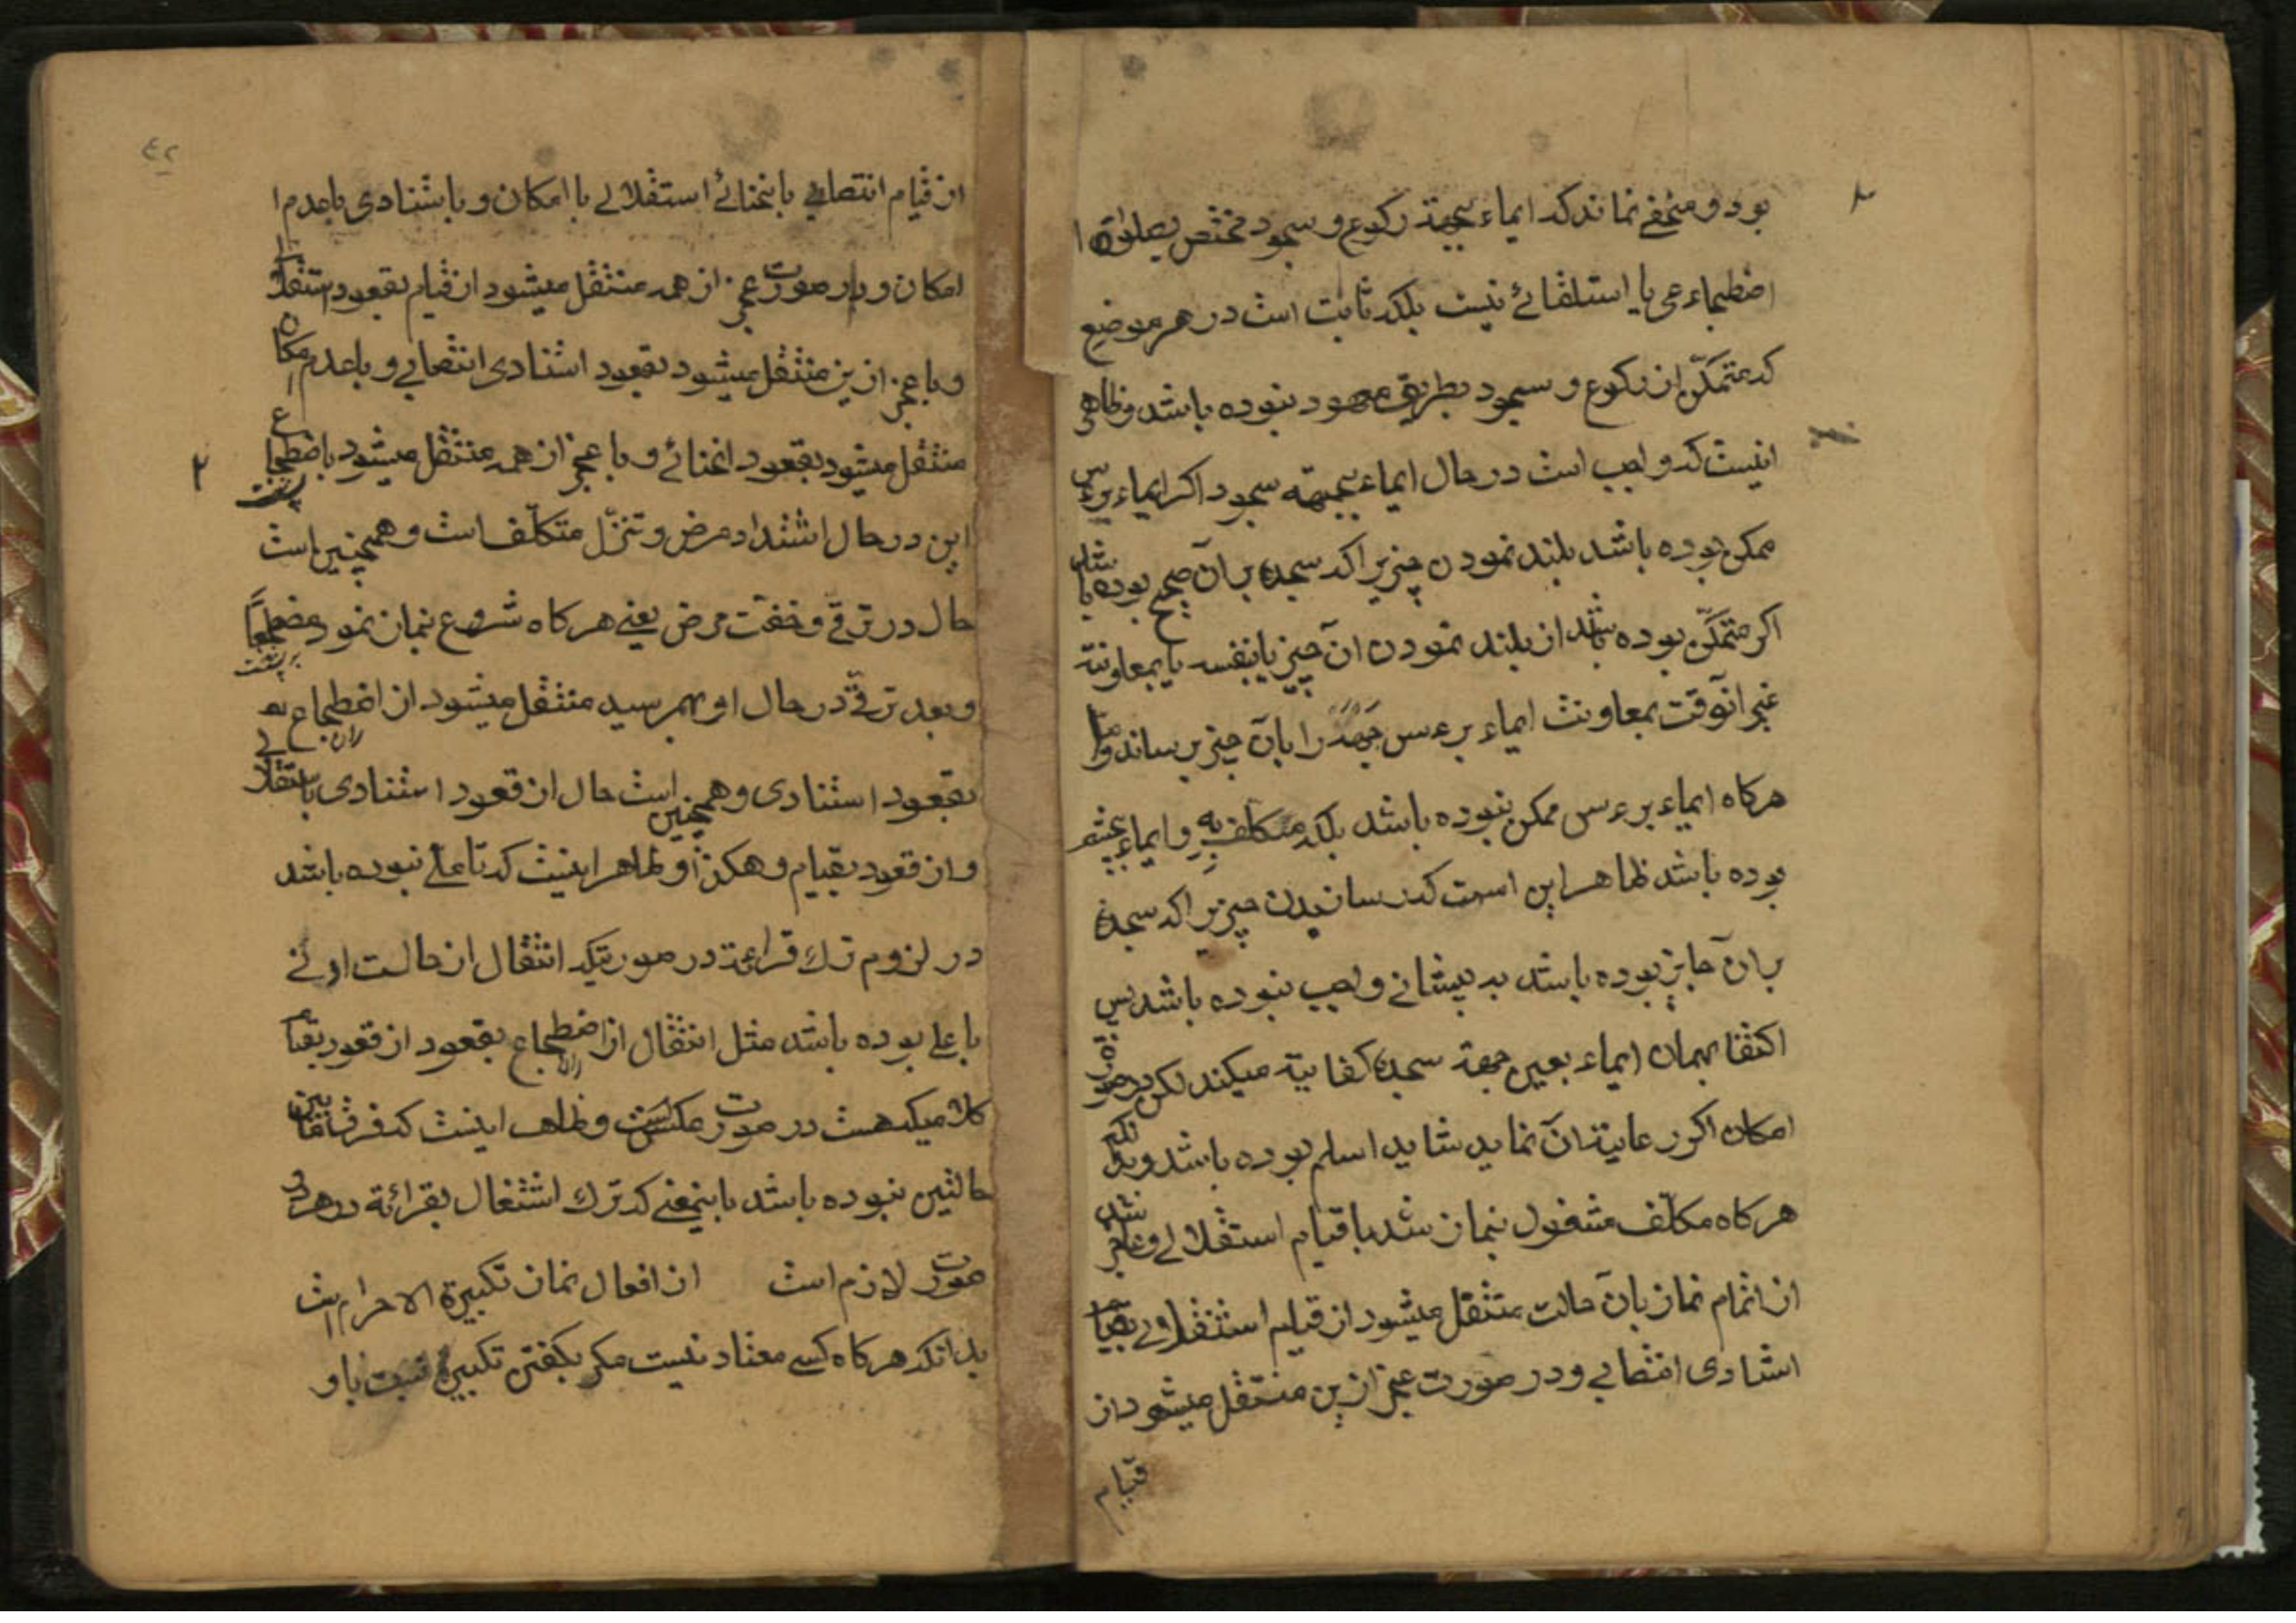 بود و مخفی نماند که ایماء بجهة رکوع و سجود مختص بصلوة
اضطجاعی یا استلقائے نیست بلکه ثابت است در هر موضع
که متمکّن از رکوع و سجود بطریق معهود نبوده باشد و ظاهر
اینست که واجب است در حال ایماء بجهته سجود اکر ایماء برءس
ممکن بوده باشد بلند نمودن چیزیرا که سجده بر آن صحیح بوده باشد
اکر متمکّن بوده باشد از بلند نمودن آن چیز یا بنفسه یا بمعاونة
غیر آنوقت بمعاونت ایماء برءس جَبهَه را بآن چیز برساند و امّا
هرکاه ایماء برءس ممکن نبوده باشد بلکه متکلف به ایماء بچشم
بوده باشد ظاهر این است که رسانیدن چیزیرا که سجده
بر آن جایز بوده باشد به پیشانے واجب نبوده باشد پس
اکتفا بهمان ایماء بعین جهة سجده کفایة میکند لکن در صورة
امکان اکر رعایة آن نماید شاید اسلم بوده باشد و بدانکه
هرکاه مکلّف مشغول بنماز شد با قیام استقلالے و عاجز شد
از اتمام نماز بآن حالت منتقل میشود از قیام استقلالے بقیام
استنادی انتصابے و در صورت عجز ازین منتقل میشود از
قیام
٤٢
از قیام انتصابے بانحنائے استقلالے با امکان و باستنادی باعدم ا
امکان و در صورت عجز از همه منتقل میشود از قیام بقعود استقلالے
و با عجز ازین منتقل میشود بقعود استنادی انتصابے و باعدم امکان
منتقل میشود بقعود انحنائے و با عجز از همه منتقل میشود باضطجاع
این در حال اشتداد مرض و تنزّل متکلّف است و همچنین است
حال در ترقّے و خفّت مرض یعنے هرکاه شروع بنماز نمود مضطجعاً
و بعد ترقّے در حال او بهمرسید منتقل میشود از اضطجاع
بقعود استنادی و همچنین است حال از قعود استنادی باستقلالے
و از قعود بقیام و هکذا و ظاهر اینست که تاملے نبوده باشد
در لزوم ترك قراءة در صورتیکه انتقال از حالت ادنے
باعلے بوده باشد مثل انتقال از اضطجاع بقعود از قعود بقیام
کلامیکه هست در صورت عکسست و ظاهر اینست که فرق مابین
حالتین نبوده باشد باینمعنے که ترك اشتغال بقرائة در هر دو
صورت لازم است از افعال نماز تکبیرة الاحرام است
بدانکه هرکاه کسے معتاد نیست مکر بکفتن تکبیرة نسبت باو